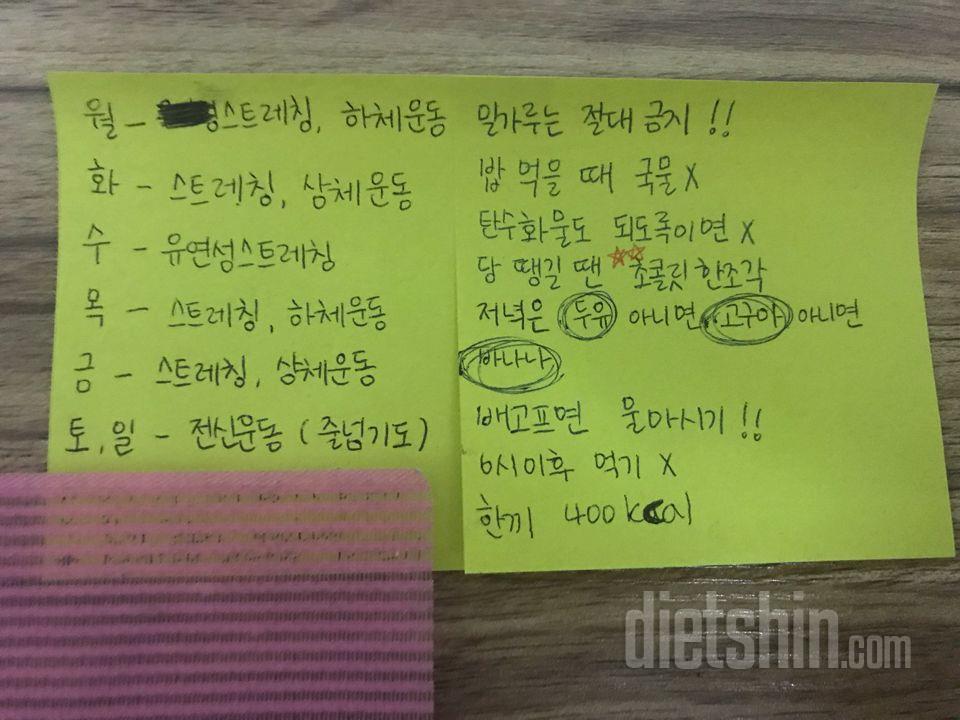 월 - 스트레칭, 하체운동
화 - 스트레칭, 상체운동
수 - 유연성스트레칭
목 - 스트레칭, 하체운동
금 - 스트레칭, 상체운동
토, 일 - 전신운동 (줄넘기도)
밀가루는 절대 금지!!
밥 먹을 때 국물 X
탄수화물도 되도록이면 X
당 땡길 땐 ☆☆ 초콜릿 한조각
저녁은 두유 아니면 고구마 아니면
바나나
배고프면 물마시기!!
6시이후 먹기 X
한끼 400kcal
dietshin.com